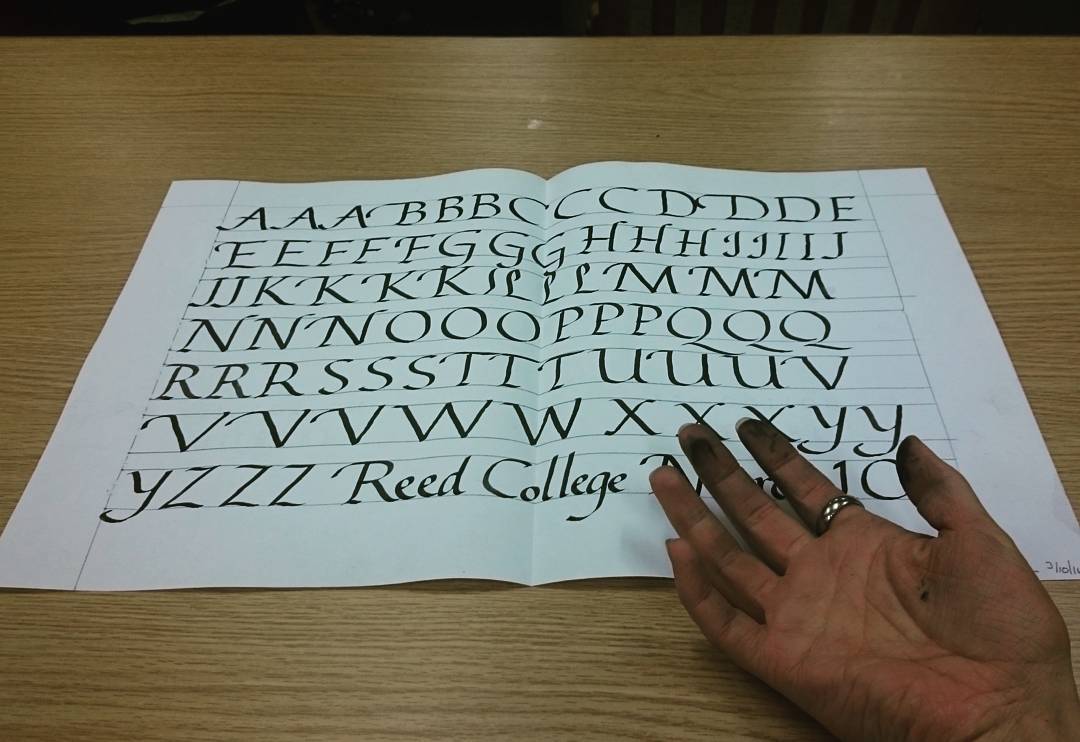 A A A B B B C C C D D D E
E E F F F G G G H H H I I I I J
J J K K K K L L L L M M M
N N N O O O P P P Q Q Q
R R R S S S T T T U U U V
V V V W W X X X Y Y
Y Z Z Z Reed College 10